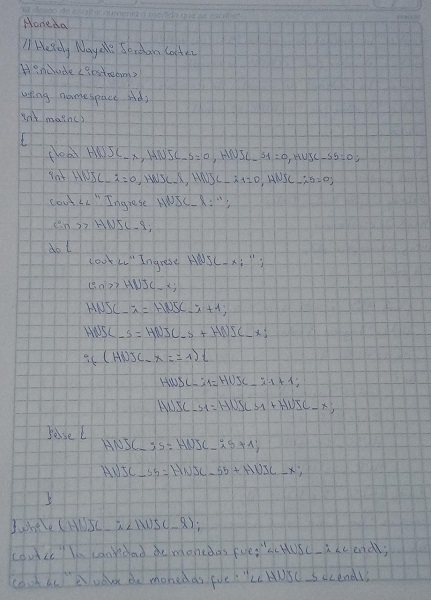 Moneda
// Heidy Nayelli Jordan Cortez
#include <iostream>
using namespace std;
int main()
{
float HNJC_x, HNJC_s=0, HNJC_s1=0, HNJC_s5=0;
int HNJC_i=0, HNJC_8, HNJC_i1=0, HNJC_i5=0;
cout<<"Ingrese HNJC_8:";
cin>>HNJC_8;
do{
cout<<"Ingrese HNJC_x:";
cin>>HNJC_x;
HNJC_i=HNJC_i+1;
HNJC_s=HNJC_s+HNJC_x;
if(HNJC_x==1){
HNJC_i1=HNJC_i1+1;
HNJC_s1=HNJC_s1+HNJC_x;
}else{
HNJC_i5=HNJC_i5+1;
HNJC_s5=HNJC_s5+HNJC_x;
}
}while(HNJC_i<HNJC_8);
cout<<"la cantidad de monedas fue:"<<HNJC_i<<endl;
cout<<"el valor de monedas fue:"<<HNJC_s<<endl;